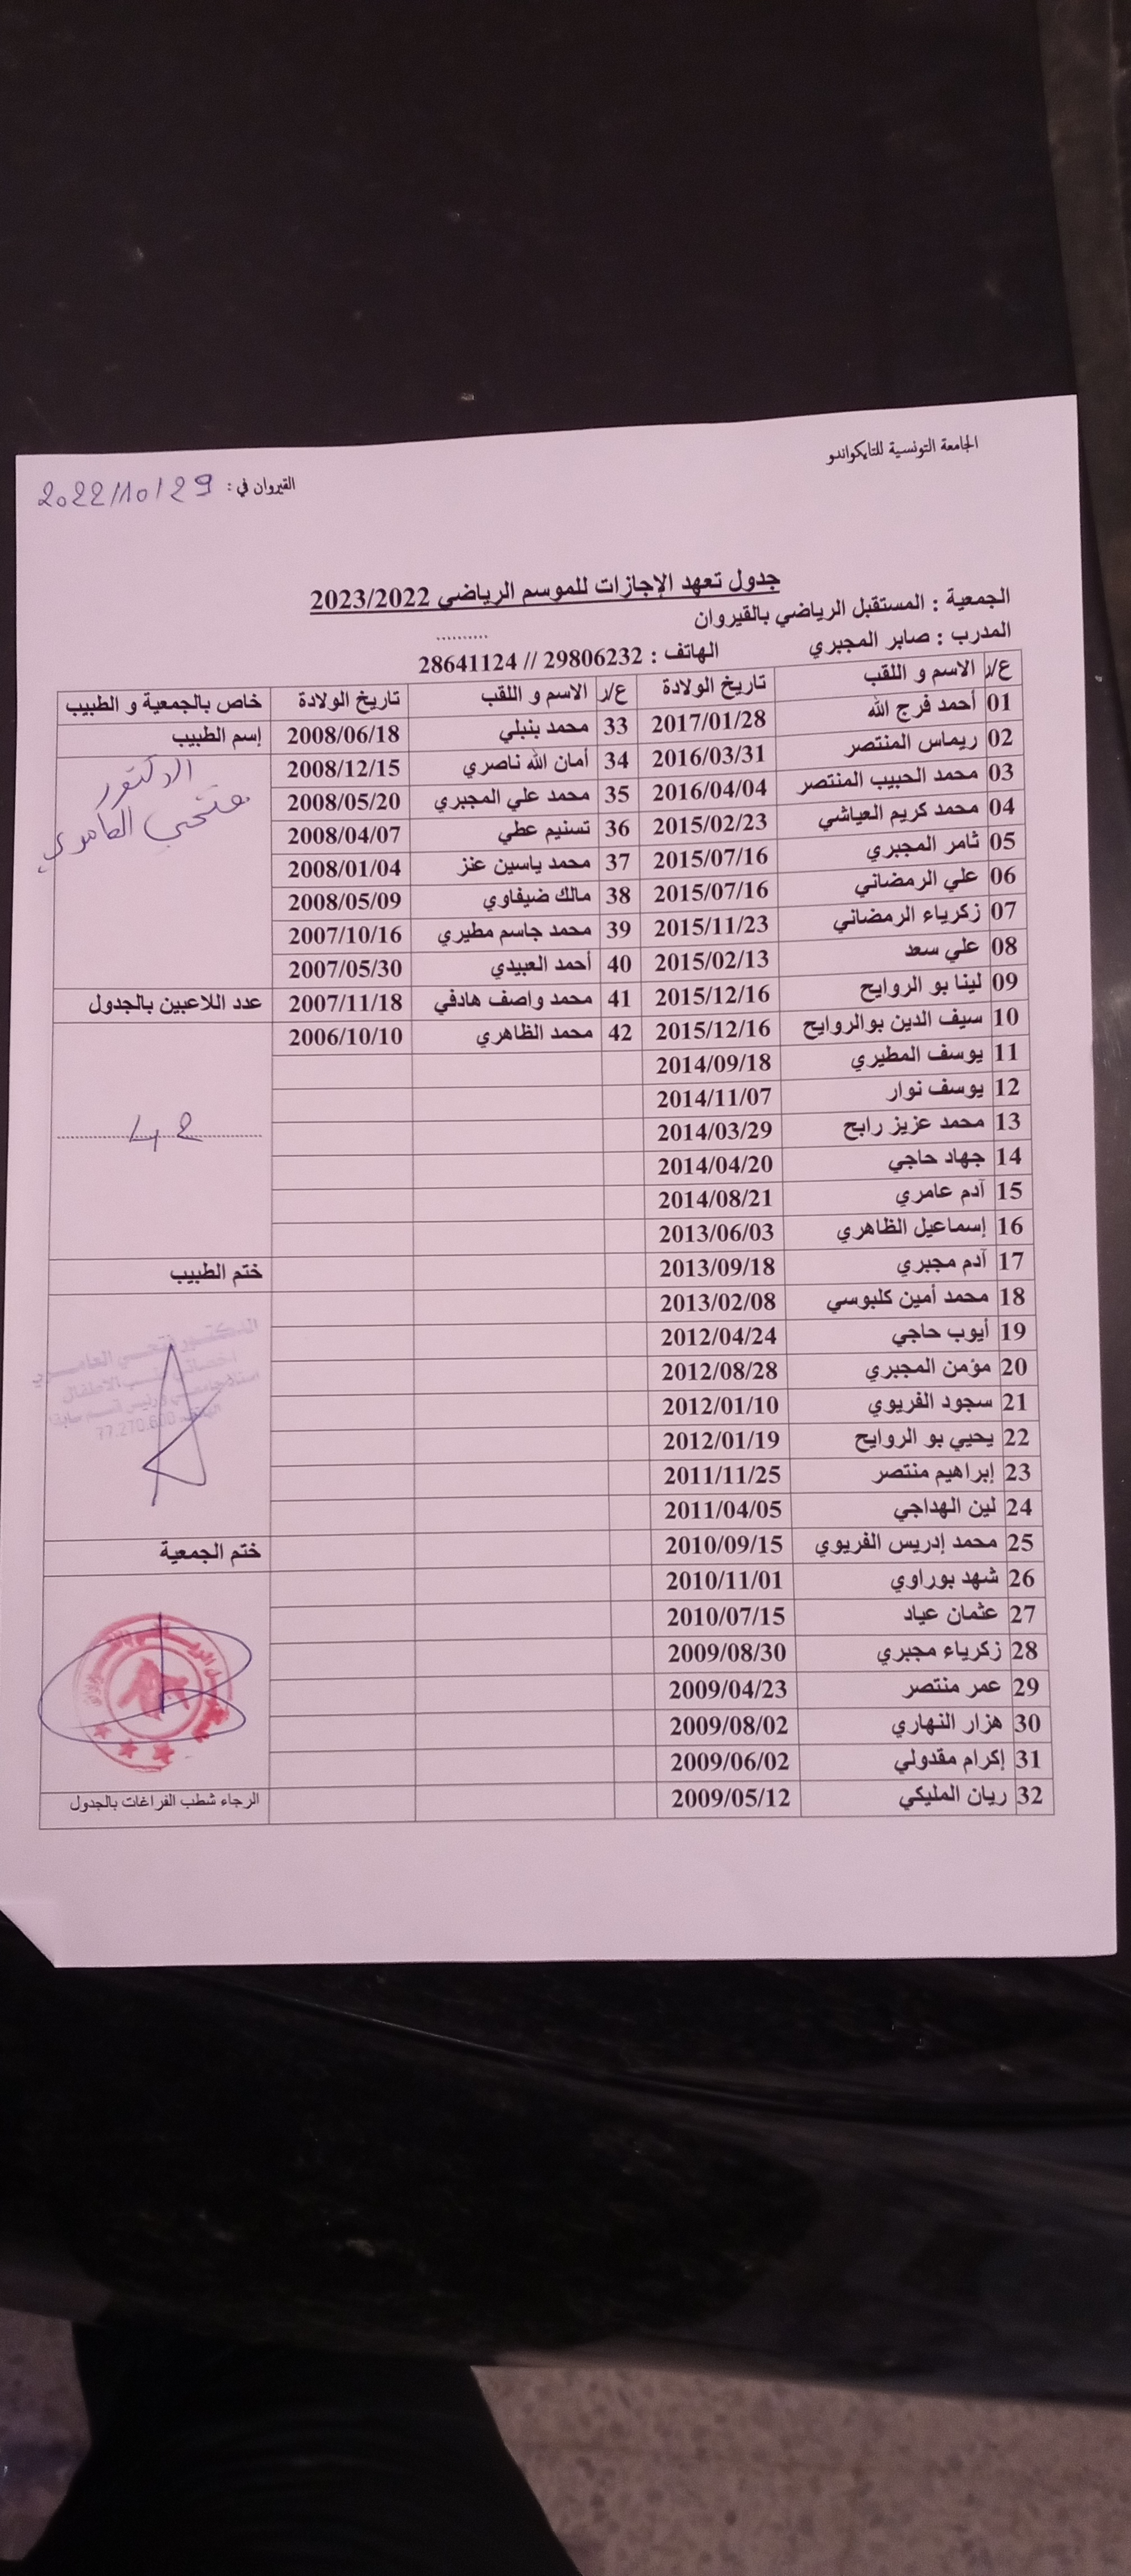 الجامعة التونسية للتايكواندو
القيروان في : 2022/10/29
جدول تعهد الإجازات للموسم الرياضي 2023/2022
الجمعية : المستقبل الرياضي بالقيروان
..........
المدرب : صابر المجبري الهاتف : 29806232 // 28641124
ع/ر الاسم و اللقب تاريخ الولادة ع/ر الاسم و اللقب تاريخ الولادة خاص بالجمعية و الطبيب
01 أحمد فرج الله 2017/01/28 33 محمد بنبلي 2008/06/18 إسم الطبيب
02 ريماس المنتصر 2016/03/31 34 أمان الله ناصري 2008/12/15 الدكتور
03 محمد الحبيب المنتصر 2016/04/04 35 محمد علي المجبري 2008/05/20 فتحي العامري
04 محمد كريم العياشي 2015/02/23 36 تسنيم عطي 2008/04/07
05 ثامر المجبري 2015/07/16 37 محمد ياسين عنز 2008/01/04
06 علي الرمضاني 2015/07/16 38 مالك ضيفاوي 2008/05/09
07 زكرياء الرمضاني 2015/11/23 39 محمد جاسم مطيري 2007/10/16
08 علي سعد 2015/02/13 40 أحمد العبيدي 2007/05/30
09 لينا بو الروايح 2015/12/16 41 محمد واصف هادفي 2007/11/18 عدد اللاعبين بالجدول
10 سيف الدين بوالروايح 2015/12/16 42 محمد الظاهري 2006/10/10
11 يوسف المطيري 2014/09/18
12 يوسف نوار 2014/11/07
13 محمد عزيز رابح 2014/03/29 42
14 جهاد حاجي 2014/04/20
15 آدم عامري 2014/08/21
16 إسماعيل الظاهري 2013/06/03
17 آدم مجبري 2013/09/18 ختم الطبيب
18 محمد أمين كلبوسي 2013/02/08
19 أيوب حاجي 2012/04/24 الدكتور فتحي العامري
20 مؤمن المجبري 2012/08/28
21 سجود الفريوي 2012/01/10
22 يحيي بو الروايح 2012/01/19
23 إبراهيم منتصر 2011/11/25
24 لين الهداجي 2011/04/05
25 محمد إدريس الفريوي 2010/09/15 ختم الجمعية
26 شهد بوراوي 2010/11/01
27 عثمان عياد 2010/07/15
28 زكرياء مجبري 2009/08/30
29 عمر منتصر 2009/04/23
30 هزار النهاري 2009/08/02
31 إكرام مقدولي 2009/06/02
32 ريان المليكي 2009/05/12 الرجاء شطب الفراغات بالجدول